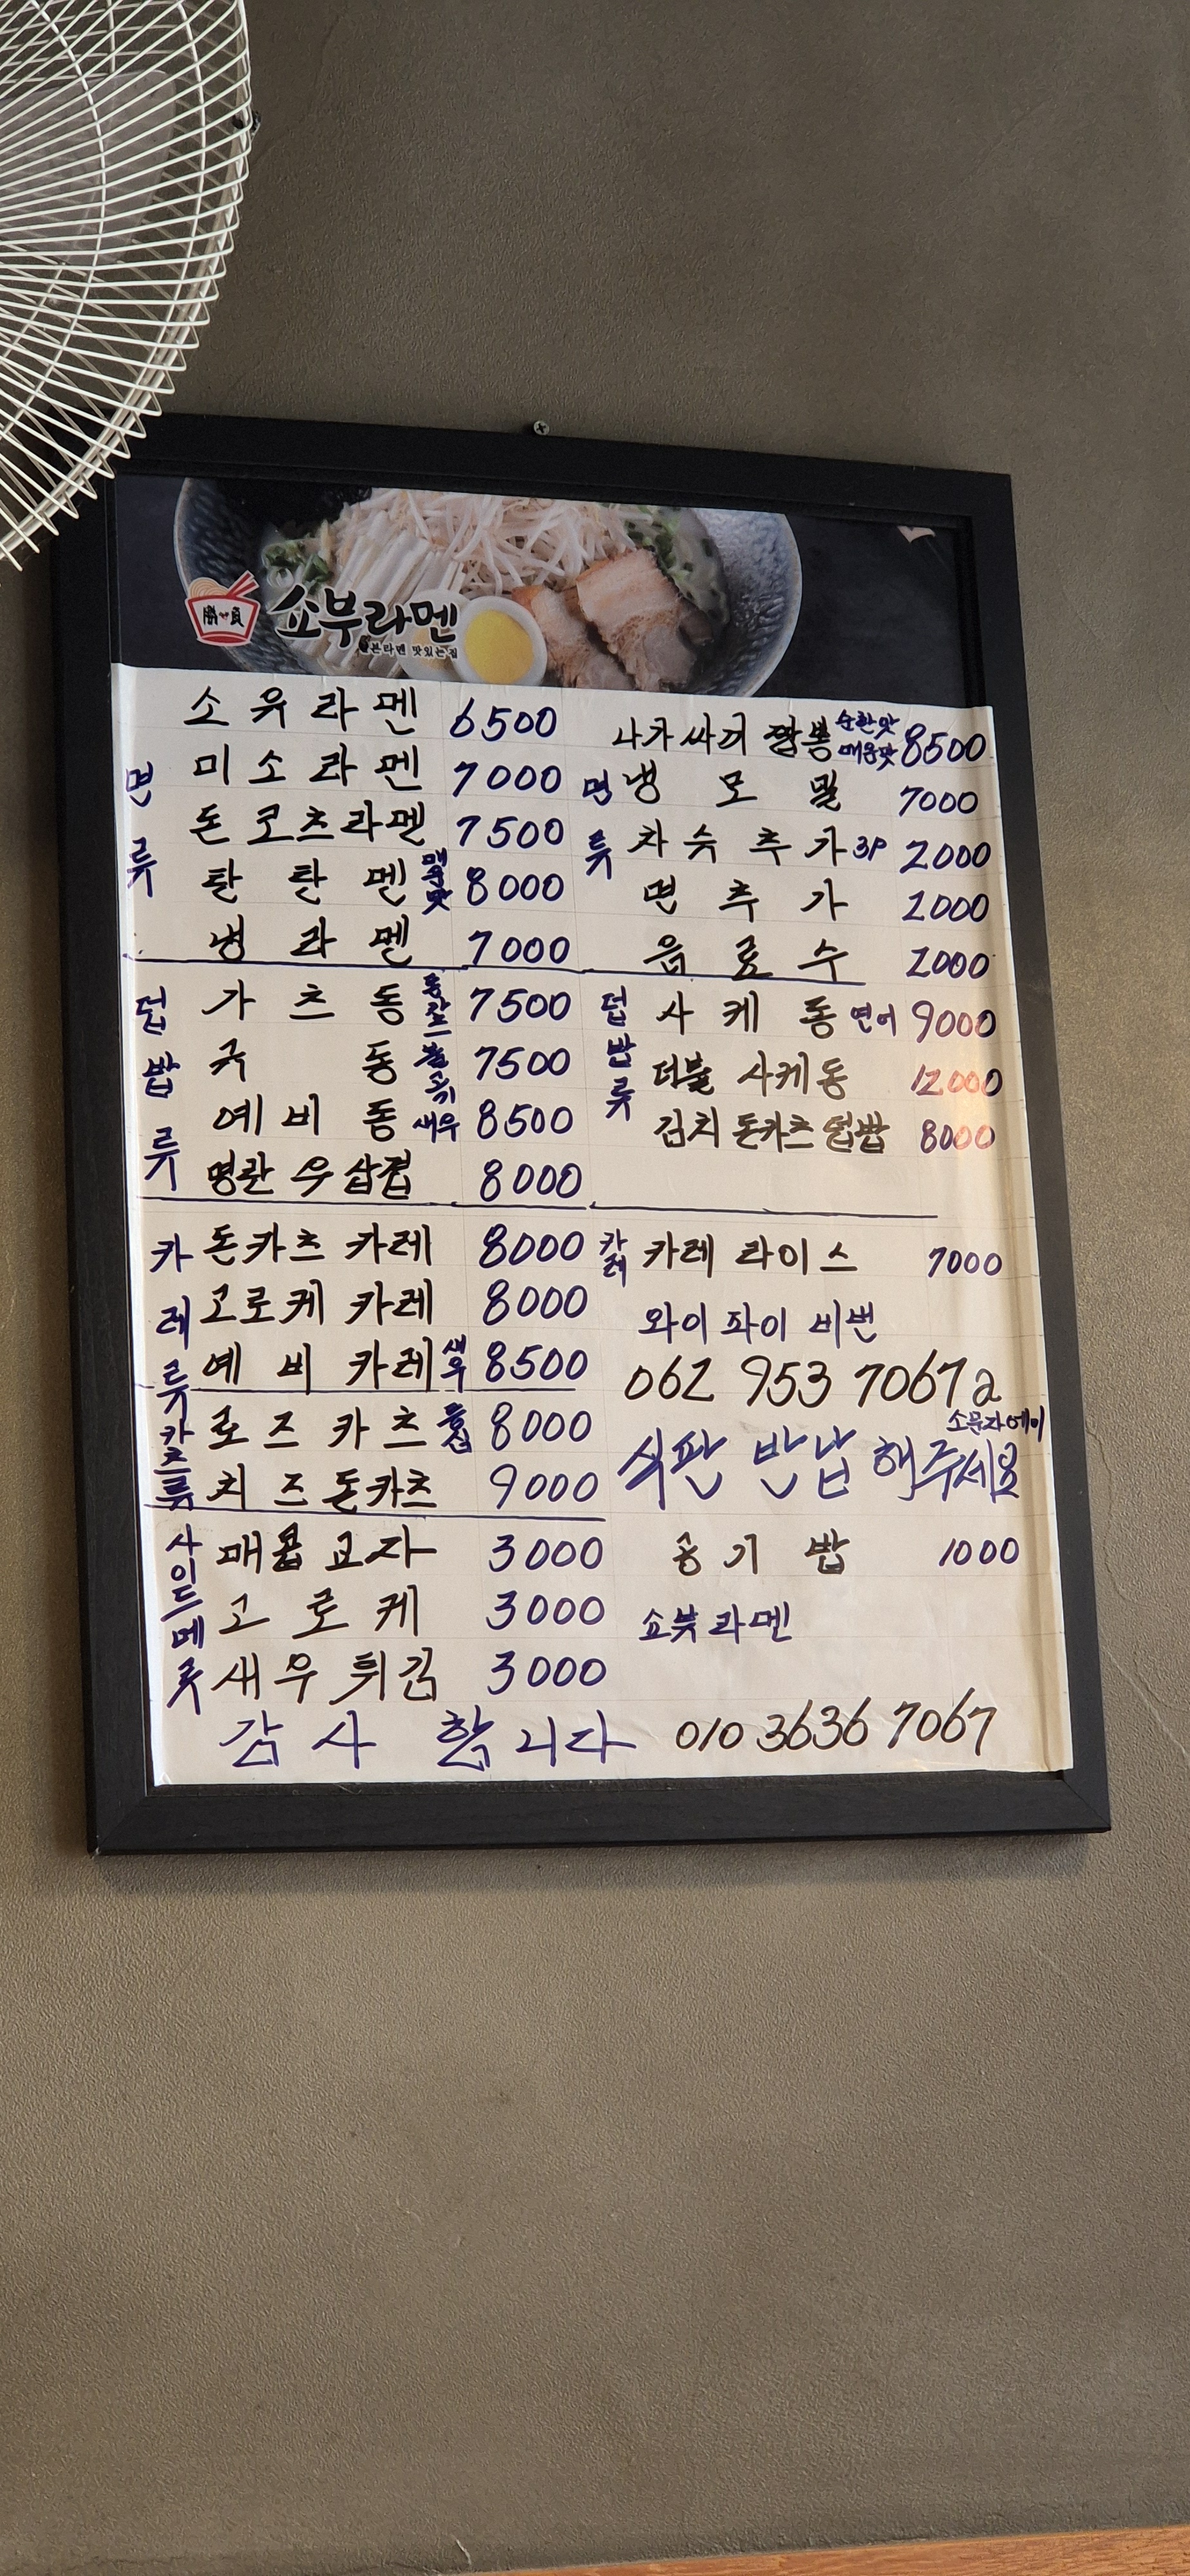 勝 負 쇼부라멘
일본라멘 맛있는집
면류
소유라멘 6500
미소라멘 7000
돈코츠라멘 7500
탄탄멘 매운맛 8000
냉라멘 7000
덮밥류
가츠동 7500
규동 불고기 7500
예비동 새우 8500
명란우삼겹 8000
카레류
돈카츠 카레 8000
고로케 카레 8000
예비 카레 새우 8500
카츠류
로즈카츠 등심 8000
치즈돈카츠 9000
사이드메류
매콤교자 3000
고로케 3000
새우튀김 3000
감사 합니다
면류
나가싸끼 짬뽕 순한맛 매운맛 8500
냉모밀 7000
차슈추가 3P 2000
면추가 2000
음료수 2000
덥밥류
사케동 연어 9000
더블 사케동 12000
김치 돈카츠 덮밥 8000
카레
카레 라이스 7000
와이파이 비번
062 953 7067a
소문자에이
식판 반납 해주세요
공기밥 1000
쇼부라멘
010 3636 7067